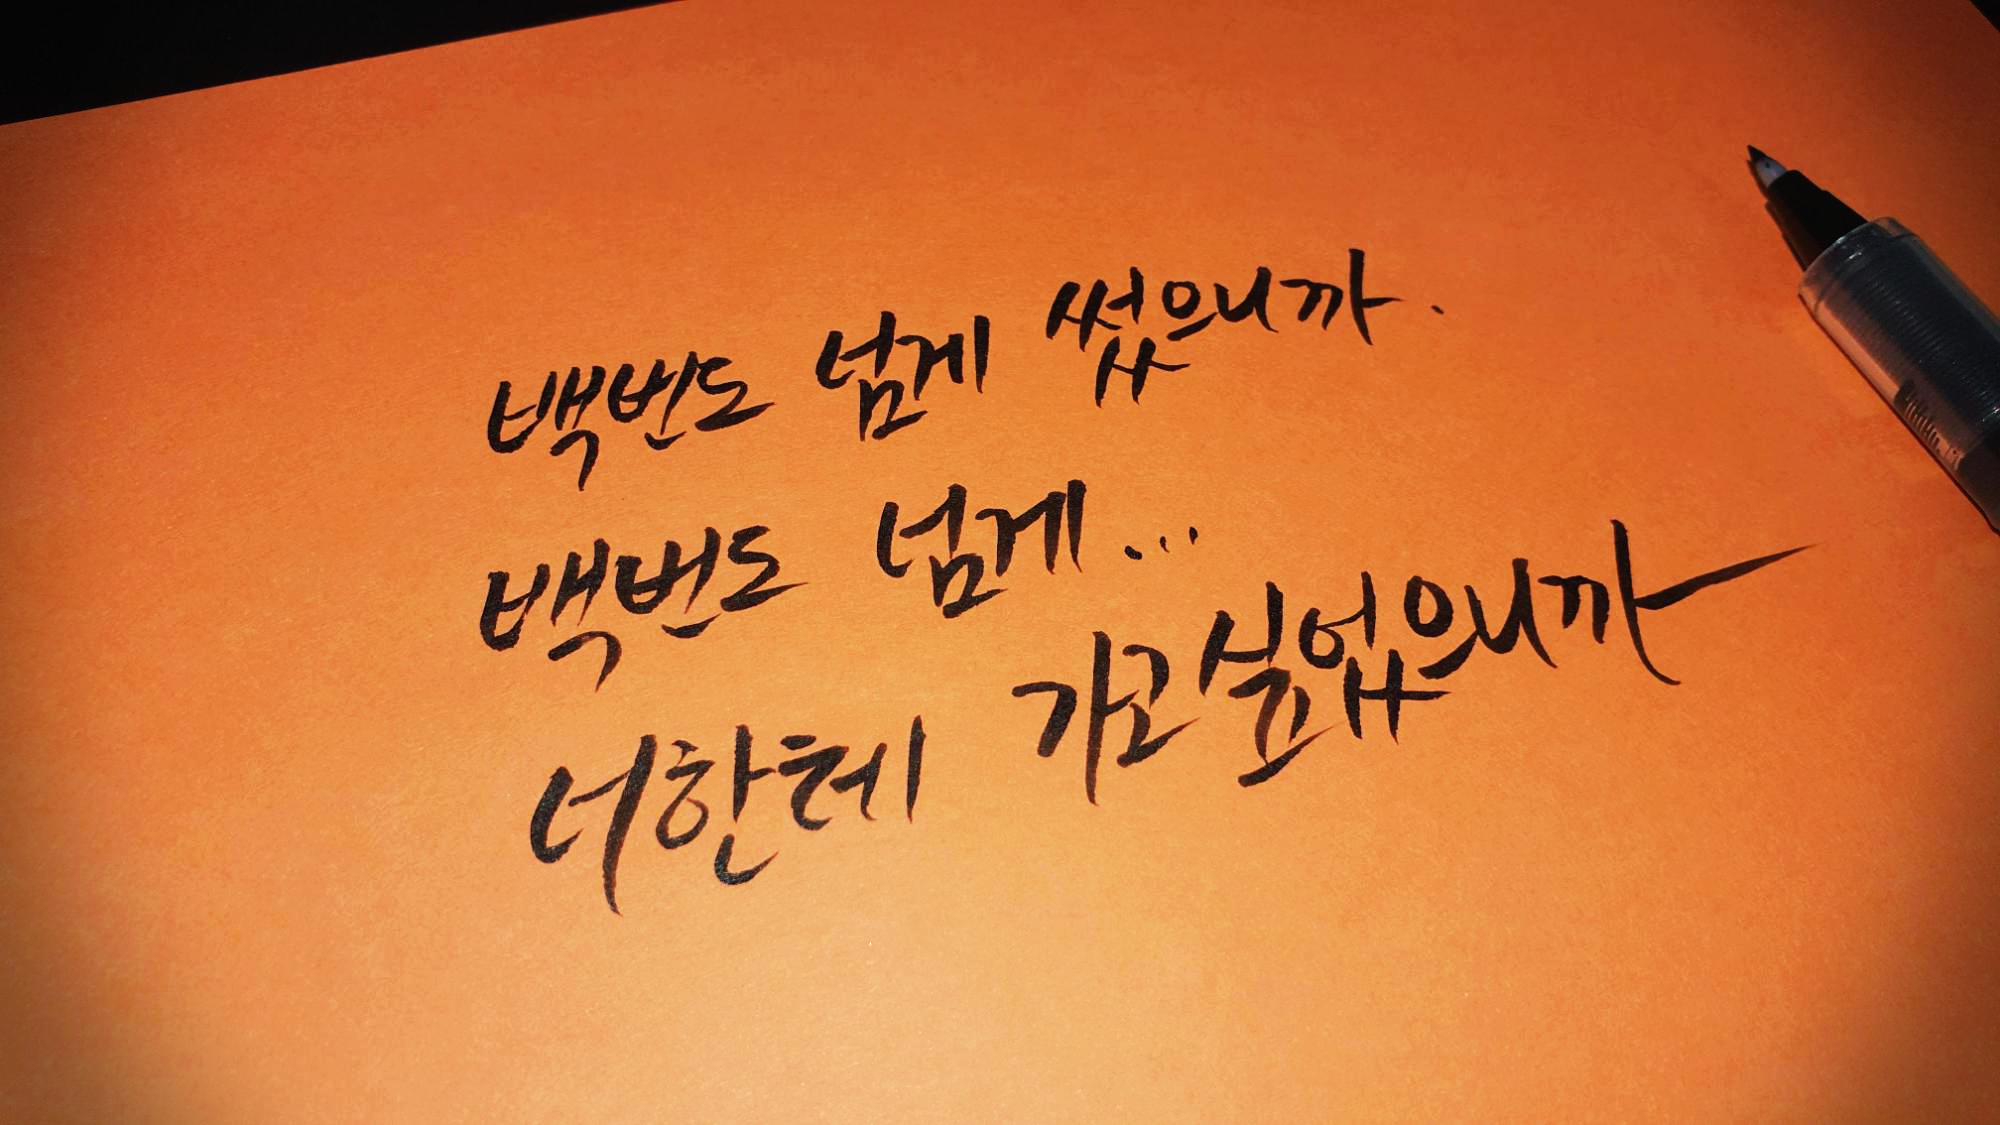 백번도 넘게 썼으니까.
백번도 넘게...
너한테 가고싶었으니까